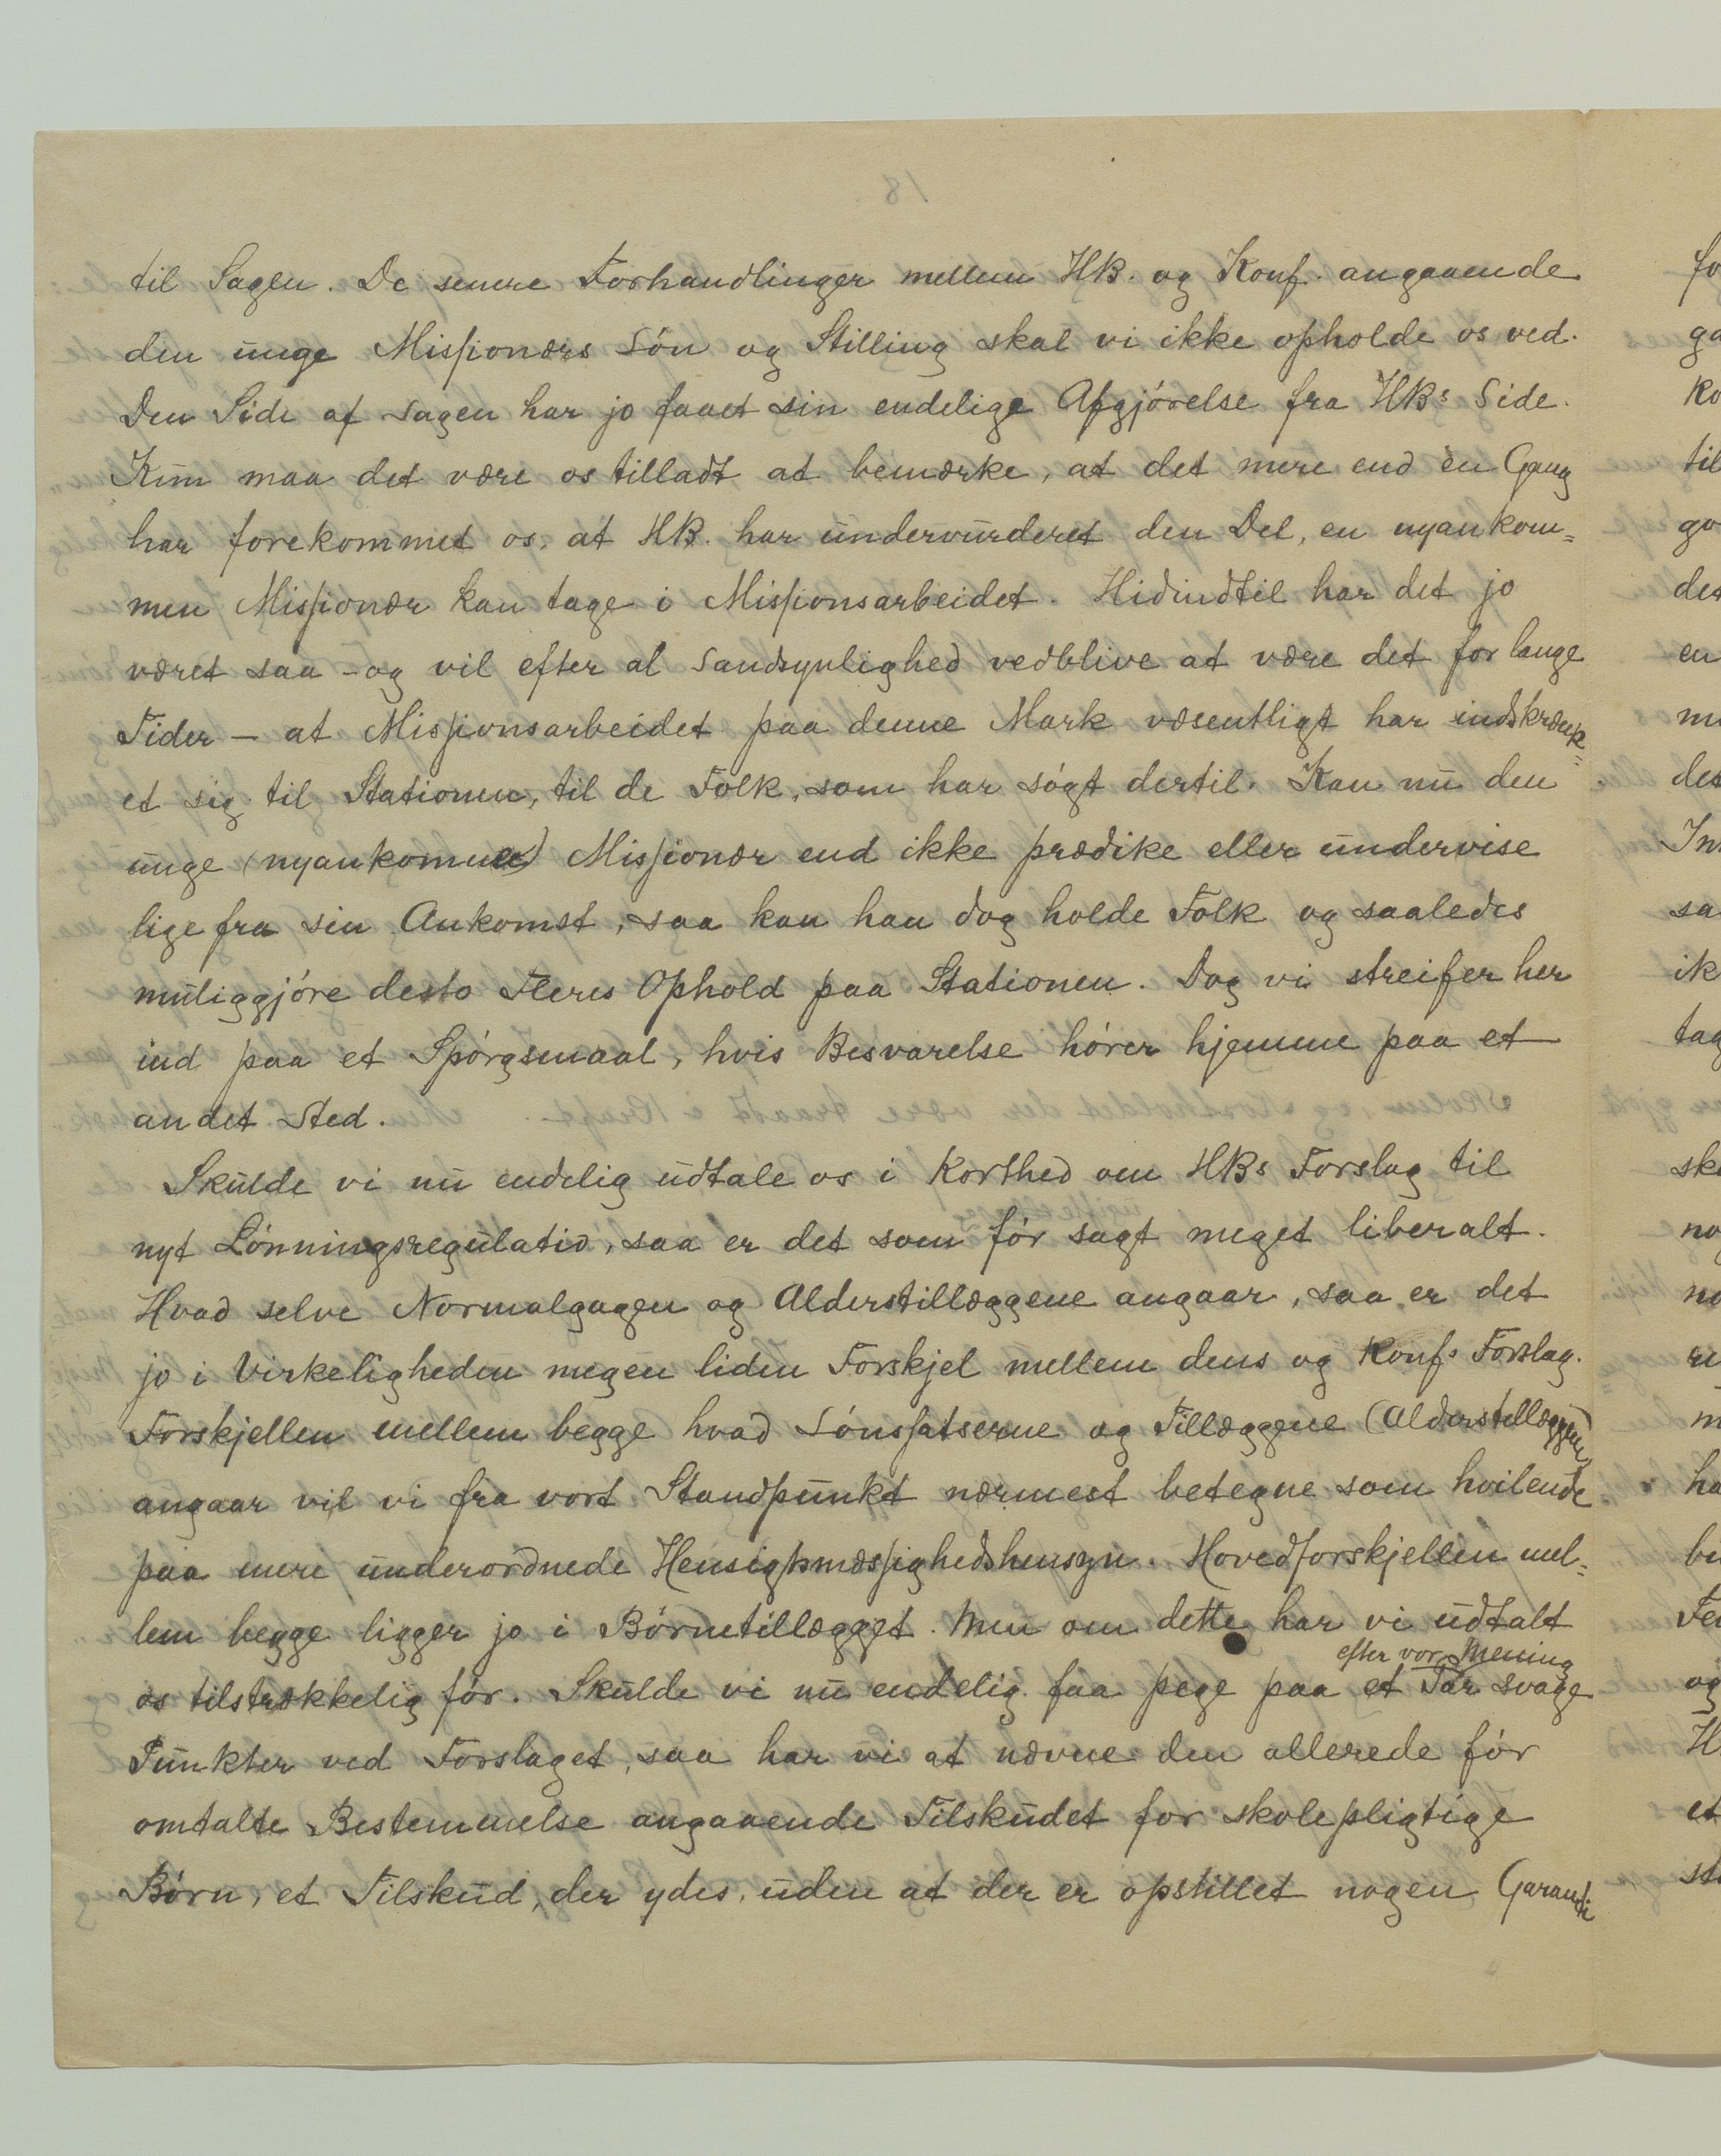 til Sagen. De senere Forhandlinger mellem HB. og Konf. angaaende
den unge Missionærs Lön og Stilling skal vi ikke opholde os ved.
Den Side af Sagen har jo faaet sin endelige Afgjörelse fra HBs Side.
Kun maa det være os tilladt at bemærke, at det mere end èn Gang
har forekommet os, at HB. har undervurderet den Del, en nyankom=
men Missionær kan tage i Missionsarbeidet. Hidindtil har det jo
været saa – og vil efter al Sandsynlighed vedblive at være det for lange
Tider – at Missionsarbeidet paa denne Mark væsentligt har indskrænk=
et sig til Stationen, til de Folk, som har sögt dertil. Kan nu den
unge (nyankomne) Missionær end ikke prædike eller undervise
lige fra sin Ankomst, saa kan han dog holde Folk og saaledes
muliggjöre desto Fleres Ophold paa Stationen. Dog vi streifer her
ind paa et Spörgsmaal, hvis Besvarelse hörer hjemme paa et
andet Sted.
Skulde vi nu endelig udtale os i Korthed om HBs Forslag til
nyt Lönningsregulativ, saa er det som för sagt meget liberalt.
Hvad selve Normalgagen og Alderstillæggene angaar, saa er det
jo i Virkeligheden megen liden Forskjel mellem dens og Konfs Forslag.
Forskjellen mellem begge hvad Lönssatserne og Tillæggene (Alderstillæggene)
angaar vil vi fra vort Standpunkt nærmest betegne som hvilende
paa mere underordnede Hensigtsmæssighedshensyn. Hovedforskjellen mel=
lem begge ligger jo i Börnetillægget. Men om dette har vi udtalt
efter vor Mening
os tilstrækkelig för. Skulde vi nu endelig faa pege paa et Par svage
Punkter ved Forslaget, saa har vi at nævne den allerede för
omtalte Bestemmelse angaaende Tilskudet for skolepligtige
Börn, et Tilskud, der ydes, uden at der er opstillet nogen Garanti